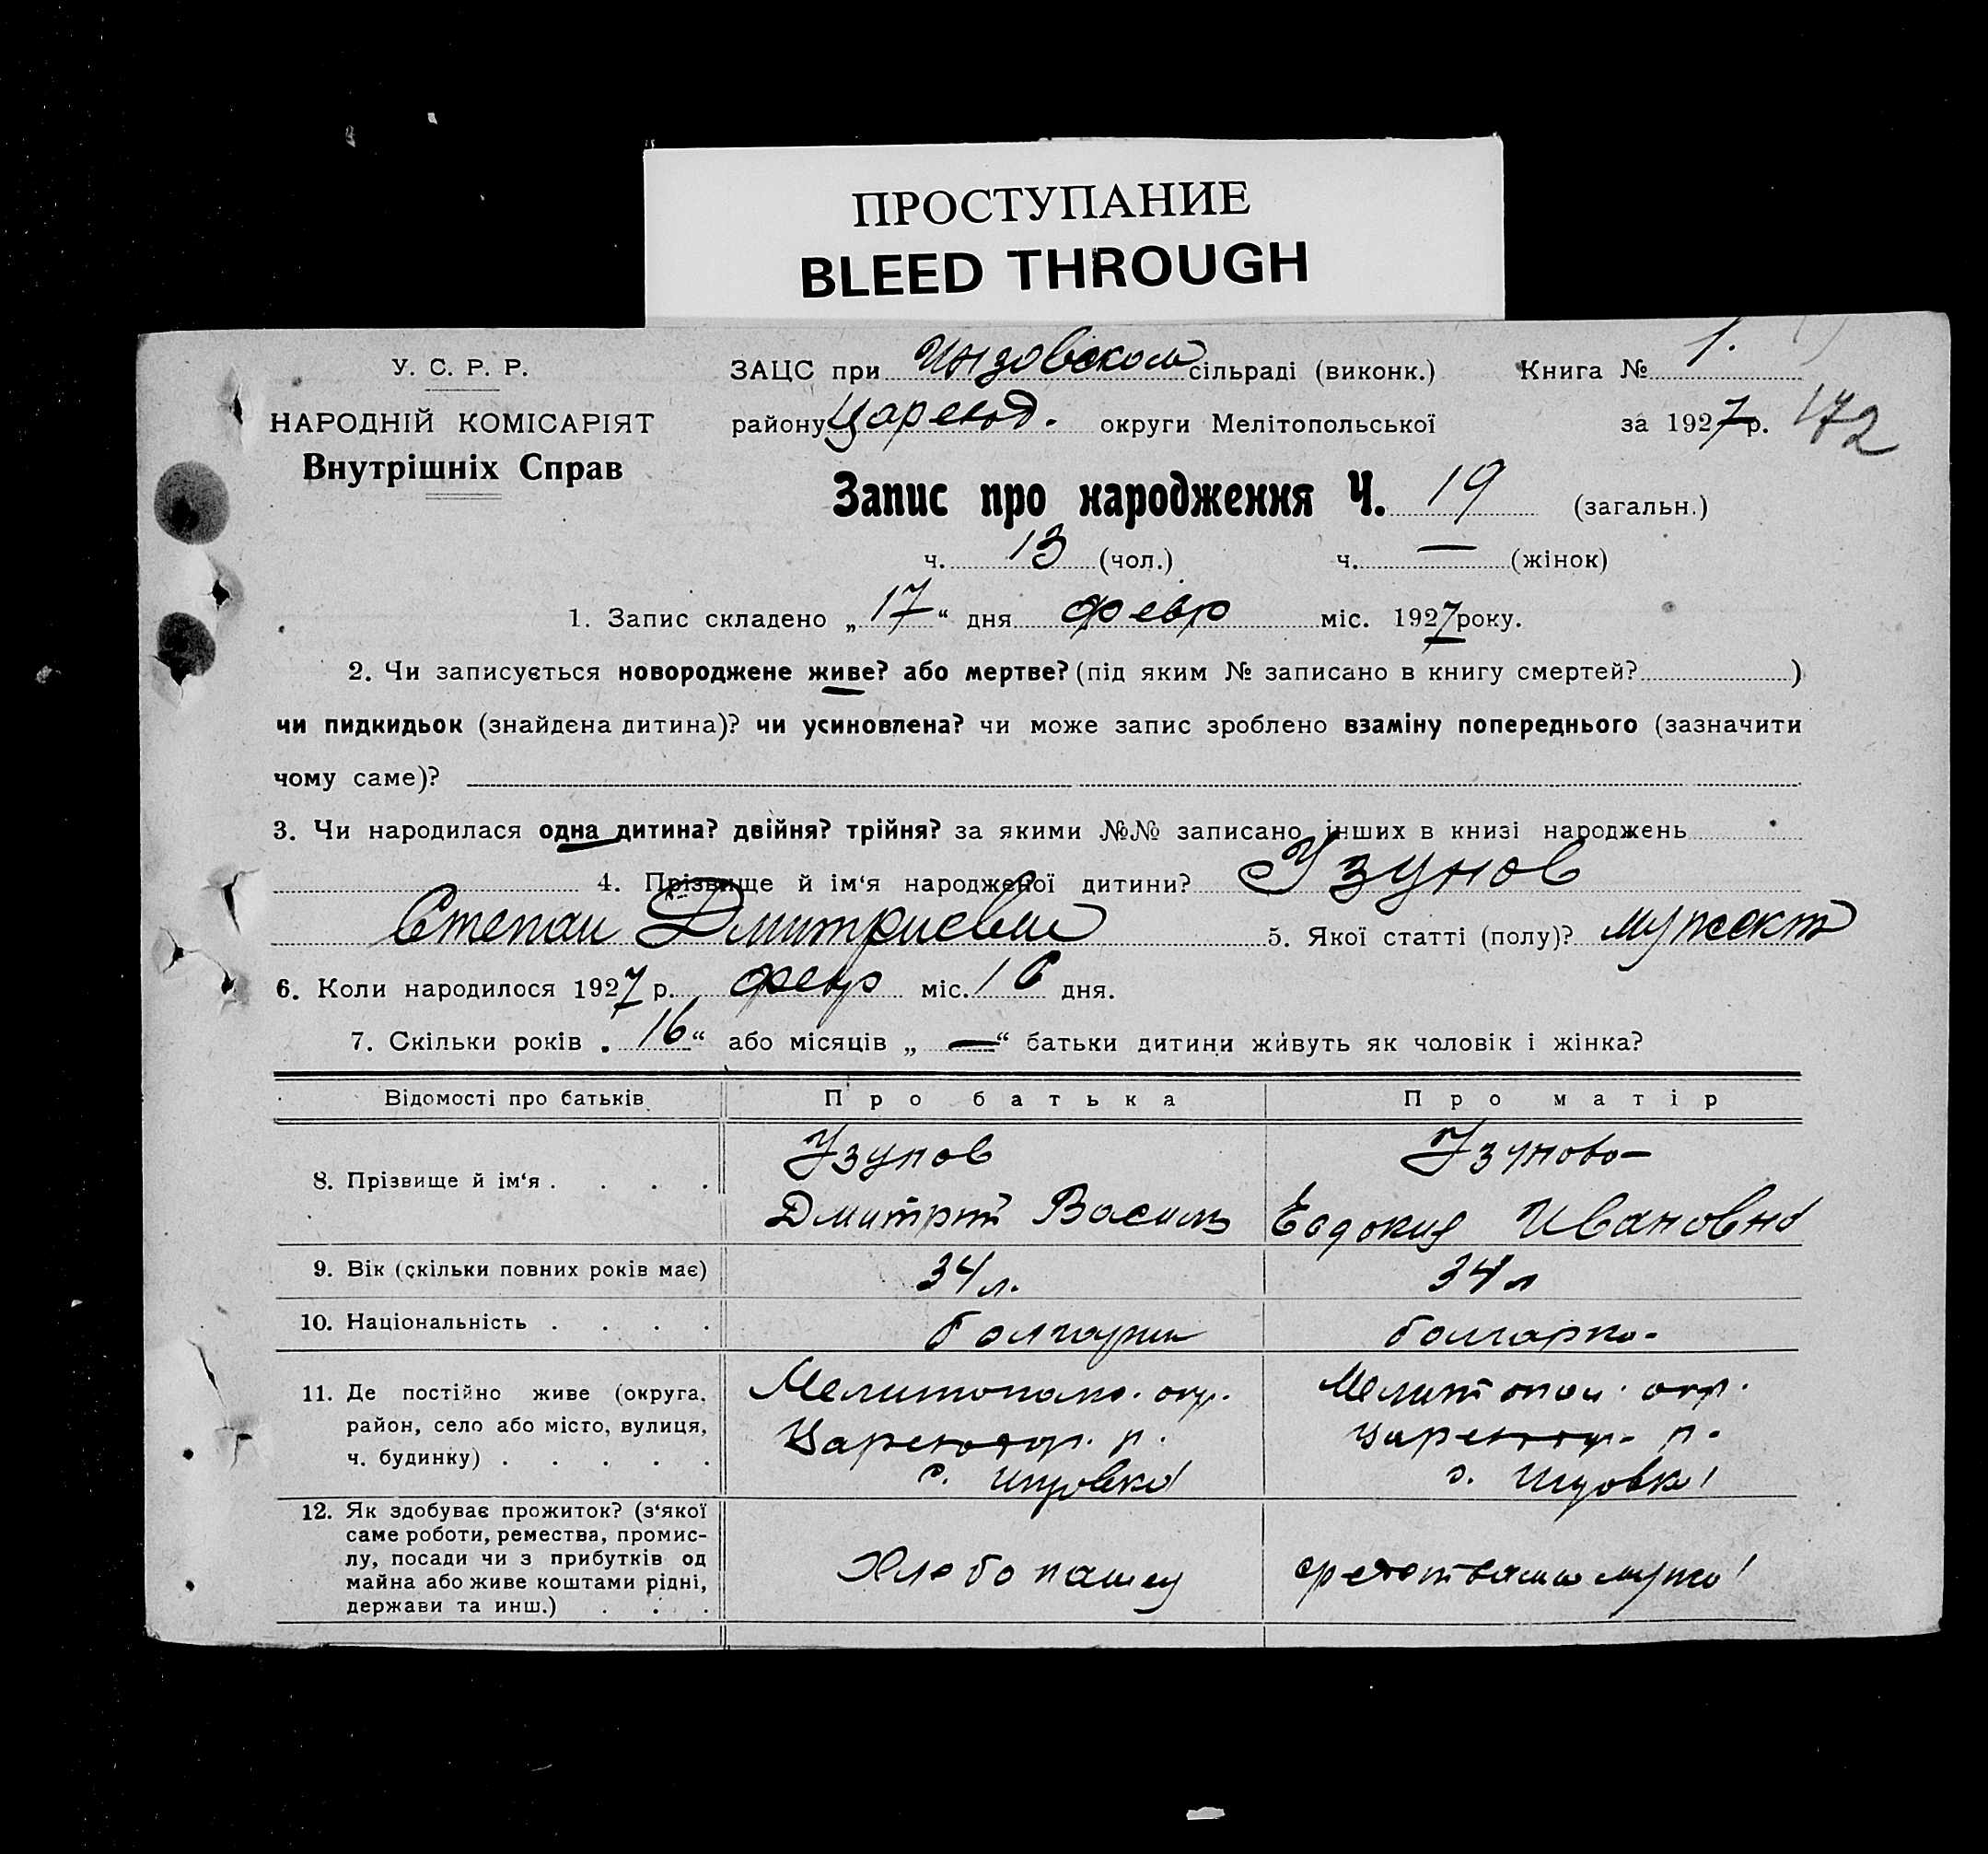 ПРОСТУПАНИЕ
BLEED THROUGH
У. С. Р. Р.
НАРОДНІЙ КОМІСАРІЯТ
Внутрішніх Справ
ЗАЦС при Инзовском сільраді (виконк.) Книга № 1.
району Царевод. округи Мелітопольської за 1927 р. 172
Запис про народження Ч. 19 (загальн.)
ч. 13 (чол.) ч. — (жінок)
1. Запис складено „17“ дня февр міс. 1927 року.
2. Чи записується новороджене живе? або мертве? (під яким № записано в книгу смертей? )
чи пидкидьок (знайдена дитина)? чи усиновлена? чи може запис зроблено взаміну попереднього (зазначити
чому саме)?
3. Чи народилася одна дитина? двійня? трійня? за якими №№ записано інших в книзі народжень
4. Прізвище й ім‘я народженої дитини? Узунов
Степан Дмитриевич 5. Якої статті (полу)? мужск
6. Коли народилося 1927 р. февр міс. 16 дня.
7. Скільки років „16“ або місяців „—“ батьки дитини живуть як чоловік і жінка?
Відомості про батьків Про батька Про матір
8. Прізвище й ім‘я . . . . Узунов Узунова
Дмитрий Васил Евдокия Ивановна
9. Вік (скільки повних років має) 34 л. 34 л
10. Національність . . . . болгарин болгарка
11. Де постійно живе (округа, район, село або місто, вулиця, ч. будинку) . . . . .
Мелитопол. окр. Мелитопол. окр.
р. р.
с. Инзовка с. Инзовка
12. Як здобуває прожиток? (з‘якої
саме роботи, ремества, промис-
лу, посади чи з прибутків од
майна або живе коштами рідні,
держави та инш.) . . .
Хлебопашец средствами мужа